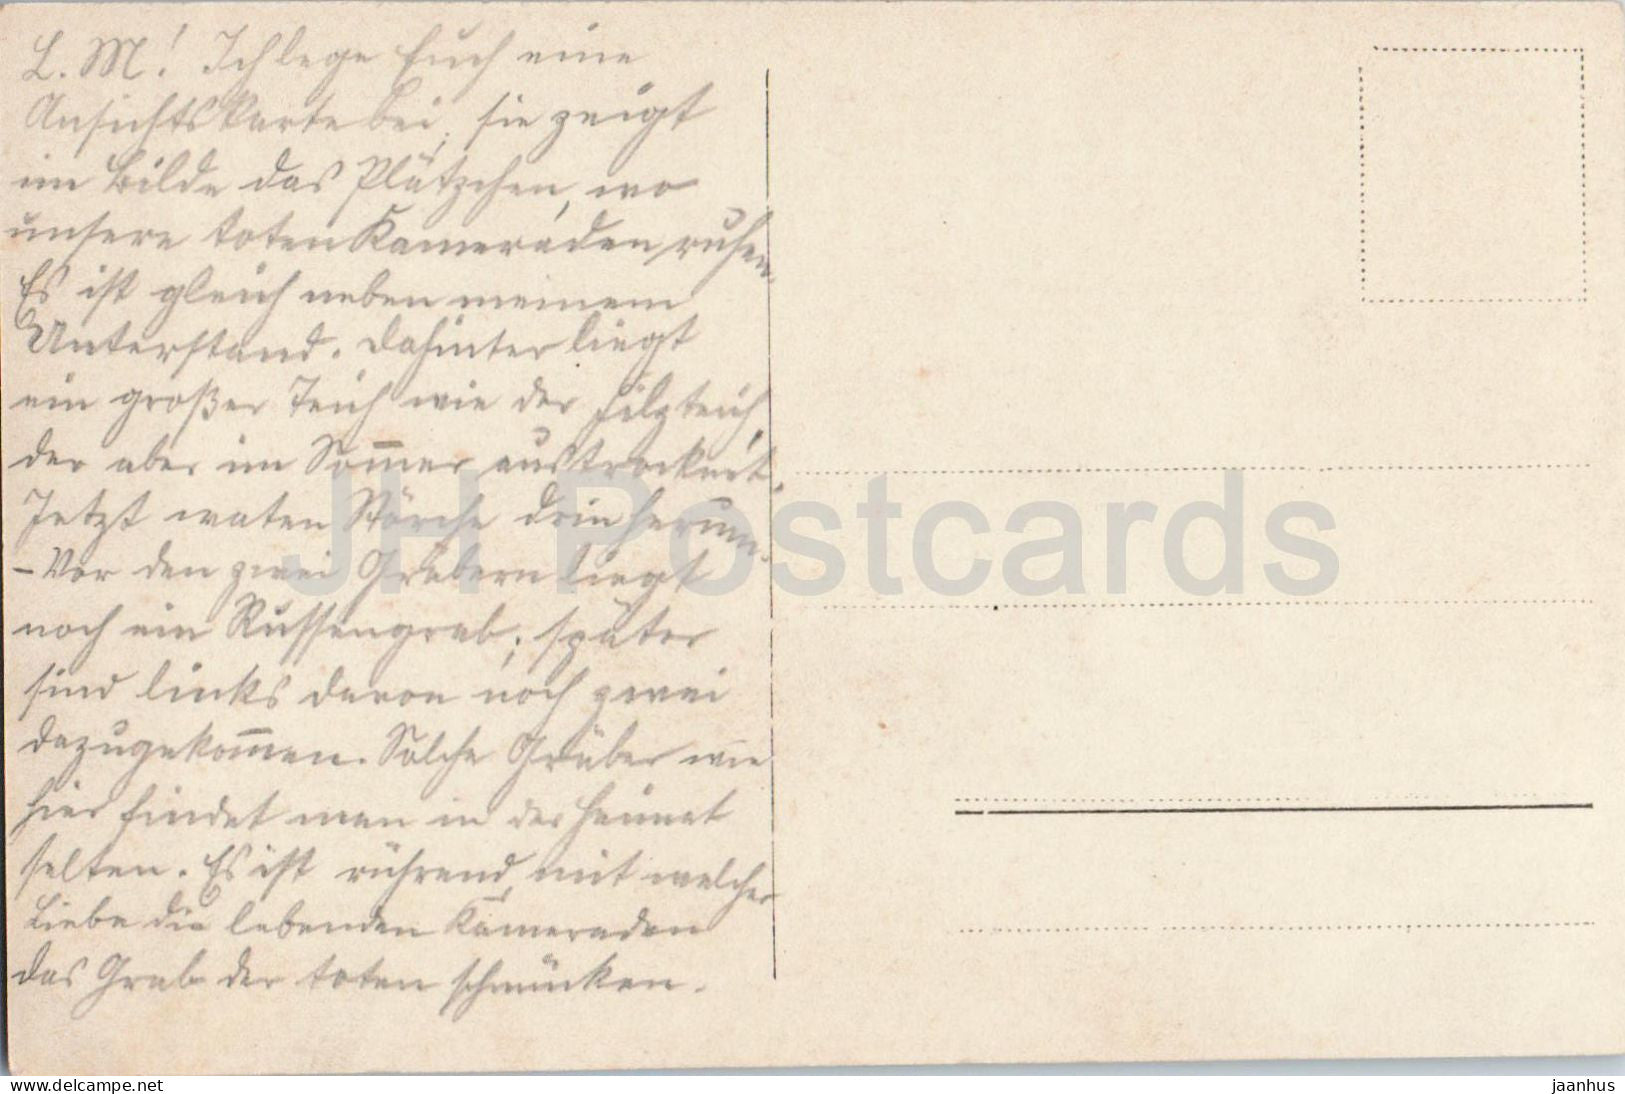 L. M! Ich lege Euch eine
Ansichtskarte bei, sie zeigt
im Bilde das Plätzchen, wo
unsere toten Kameraden ruhen.
Es ist gleich neben meinem
Unterstand. Dahinter liegt
ein großer Teich wie der Filzteich,
der aber im Som̅er austrocknet.
Jetzt waten Störche drin herum.
– Vor den zwei Gräbern liegt
noch ein Russengrab; später
sind links davon noch zwei
dazugekom̅en. Solche Gräber wie
hier findet man in der Heimat
selten. Es ist rührend, mit welcher
Liebe die lebenden Kameraden
das Grab der toten schmücken.
JH Postcards
www.delcampe.net
jaanhus